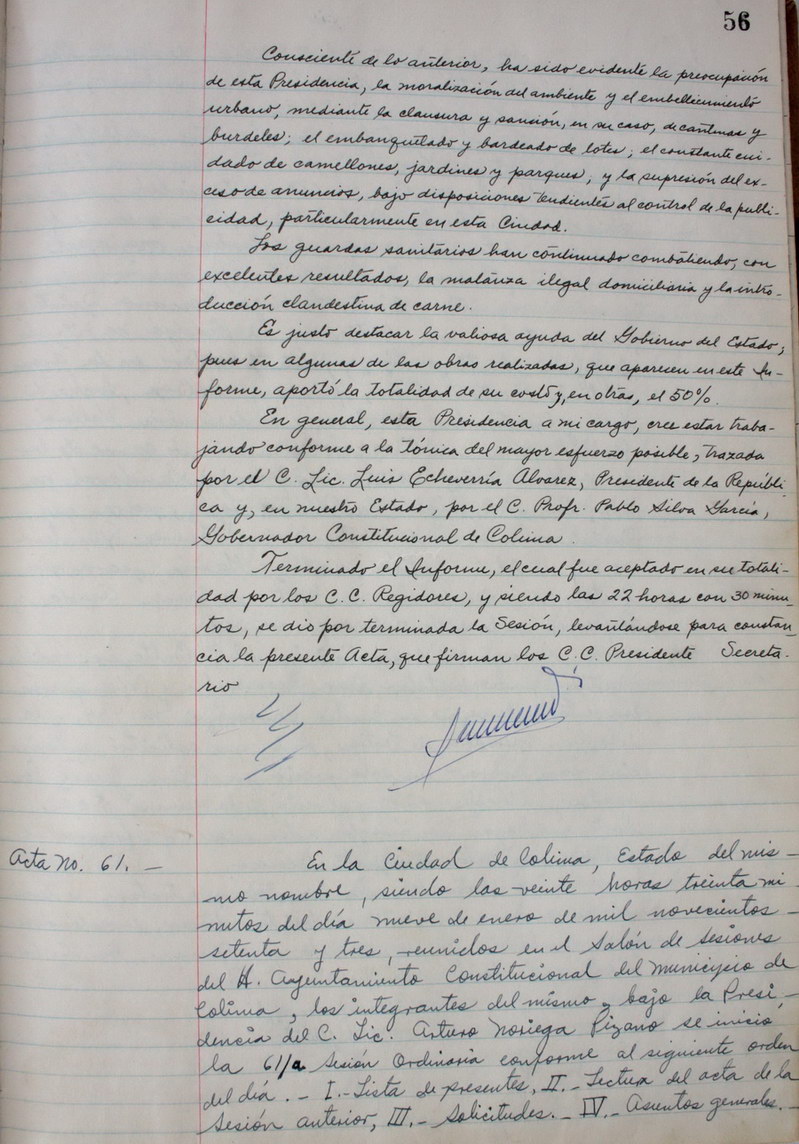 56
Consciente de lo anterior, ha sido evidente la preocupación
de esta Presidencia, la moralización del ambiente y el embellecimiento
urbano, mediante la clausura y sanción, en su caso, de cantinas y
burdeles; el embanquetado y bardeado de lotes; el constante cui-
dado de camellones, jardines y parques; y la supresión del ex-
ceso de anuncios, bajo disposiciones tendientes al control de la publi-
cidad, particularmente en esta Ciudad.
Los guardas sanitarios han continuado combatiendo, con
excelentes resultados, la matanza ilegal domiciliaria y la intro-
ducción clandestina de carne.
Es justo destacar la valiosa ayuda del Gobierno del Estado,
pues en algunas de las obras realizadas, que aparecen en este In-
forme, aportó la totalidad de su costo y, en otras, el 50%.
En general, esta Presidencia a mi cargo, cree estar traba-
jando conforme a la tónica del mayor esfuerzo posible, trazada
por el C. Lic. Luis Echeverría Alvarez, Presidente de la Repúbli-
ca y, en nuestro Estado, por el C. Profr. Pablo Silva García,
Gobernador Constitucional de Colima.
Terminado el Informe, el cual fue aceptado en su totali-
dad por los C.C. Regidores, y siendo las 22 horas con 30 minu-
tos, se dio por terminada la Sesión, levantándose para constan-
cia la presente Acta, que firman los C.C. Presidente Secreta-
rio
Acta No. 61. -
En la Ciudad de Colima, Estado del mis-
mo nombre, siendo las veinte horas treinta mi-
nutos del día nueve de enero de mil novecientos
setenta y tres, reunidos en el Salón de Sesiones
del H. Ayuntamiento Constitucional del Municipio de
Colima, los integrantes del mismo y bajo la Presi-
dencia del C. Lic. Arturo Noriega Pizano se inició
la 61/a Sesión Ordinaria conforme al siguiente orden
del día. - I.- Lista de presentes, II.- Lectura del acta de la
Sesión anterior, III.- Solicitudes. - IV.- Asuntos generales. -